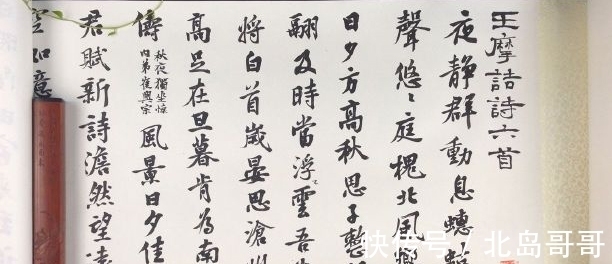 王摩詰詩六首
夜靜群動息蟪蛄
聲悠々庭槐北風響
日夕方高秋思子整
翮及時當浮雲吾
將白首歲晏思滄州
高足在旦暮肯為南
儔
秋夜獨坐懷
内弟崔興宗
風景日夕佳
君賦新詩澹然望遠
空如意
快传号 / 北岛哥哥